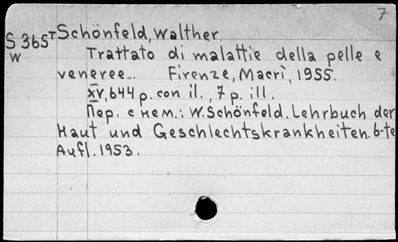 7
S 365 T Schönfeld, Walther.
W Trattato di malattie della pelle e
veneree... Firenze, Macrì, 1955.
XV, 644 p. con il., 7 p. ill.
Пер. с нем.: W. Schönfeld. Lehrbuch der
Haut und Geschlechtskrankheiten. 6-te
Aufl. 1953.